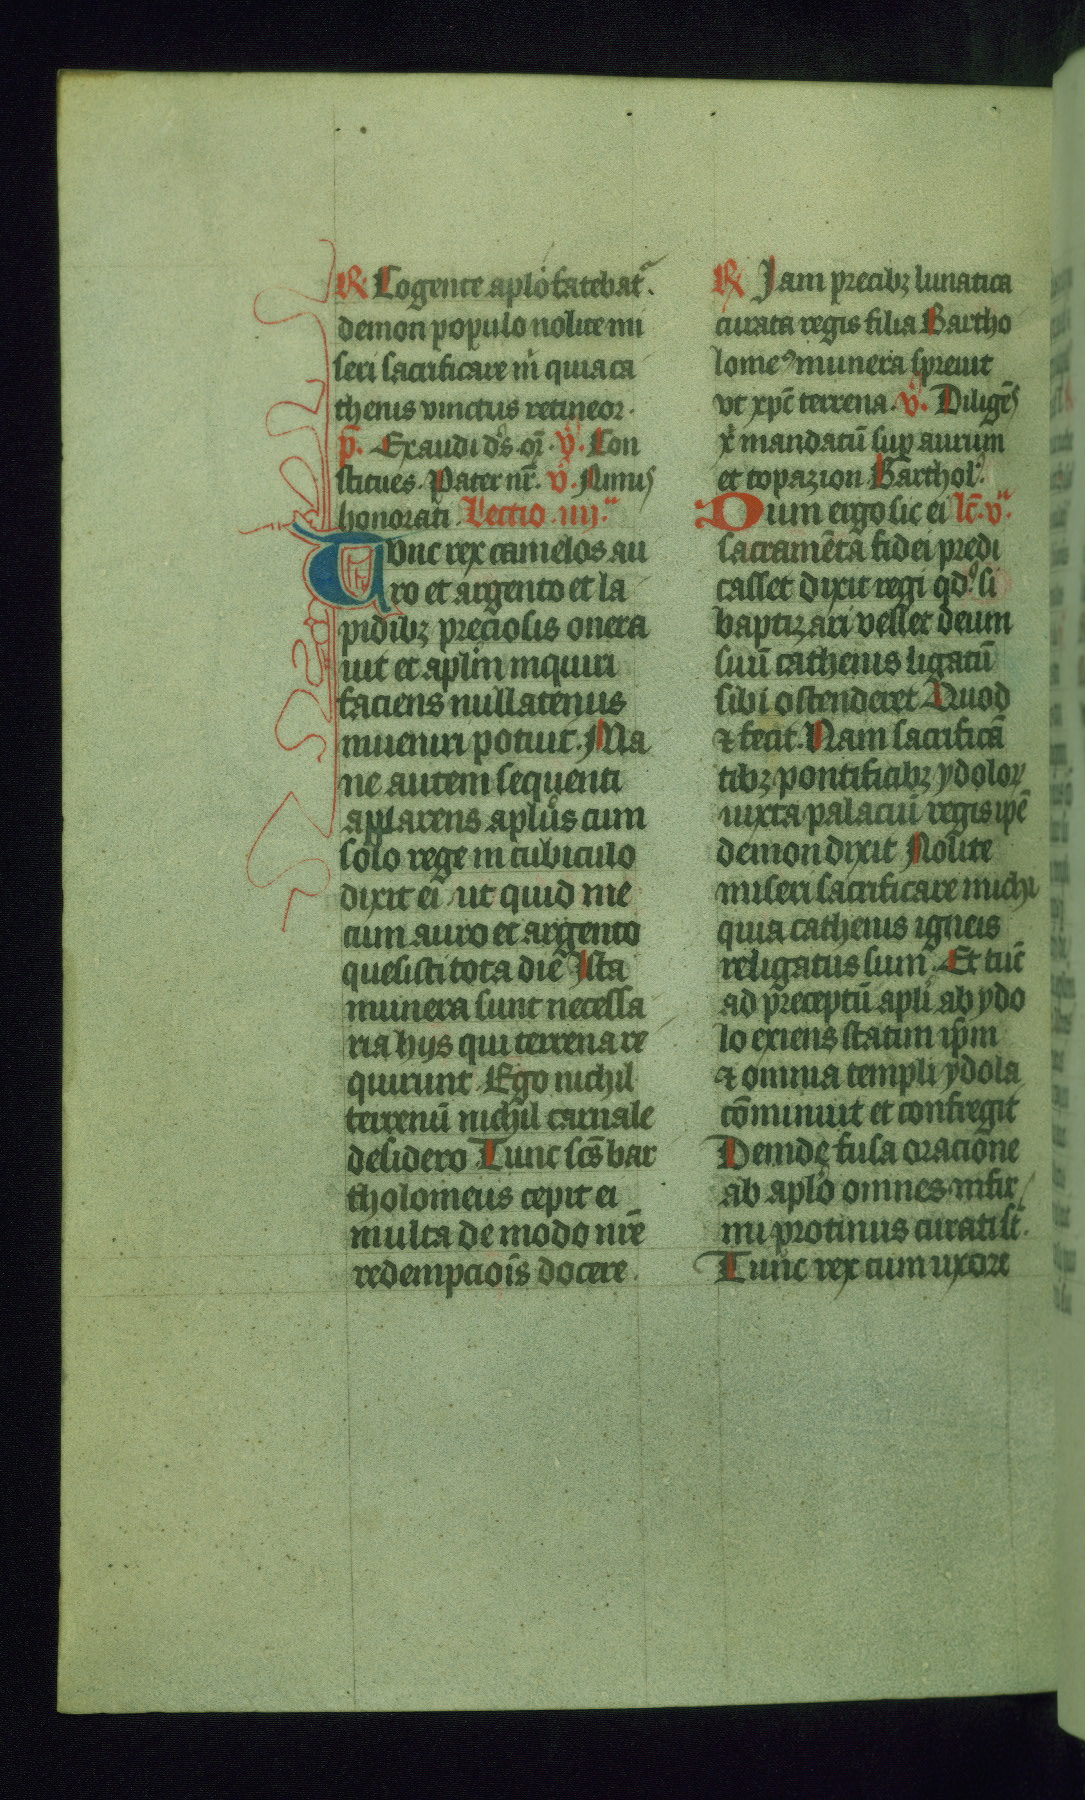 R Cogente aplo fatebat᷑.
demon populo nolite mi
seri sacrificare m̄ quia ca
thenis vinctus retineor.
p̄. Exaudi ds̄ or̄. v̄. Con
stitues. Pater nr̄. v̄. Nimis
honorati. Lectio .iiij.ᵃ
Tvnc rex camelos au
ro et argento et la
pidibꝫ preciosis onera
uit et aplm̄ inquiri
faciens nullatenus
inueniri potuit. Ma
ne autem sequenti
apparens aplus cum
solo rege in cubiculo
dixit ei ut quid me
cum auro et argento
quesisti tota die Ista
munera sunt necessa
ria hijs qui terrena re
quirunt. Ego nichil
terrenū nichil carnale
desidero Tunc scs̄ bar
tholomeus cepit ei
multa de modo nr̄e
redempciois̄ docere
R Jam precibꝫ lunatica
curata regis filia Bartho
lomeꝰ munera spreuit
vt xpc̄ terrena. v̄. Diligēs
x̄ mandatū sup̄ aurum
et topazion Barthol.
Dum ergo sic ei lc̄. v.ᵃ
sacramēta fidei predi
casset dixit regi qd̄ si
baptizari vellet deum
suū cathenis ligatū
sibi ostenderet Quod
⁊ fecit. Nam sacrificā
tibꝫ pontificibꝫ ydoloꝝ
iuxta palaciū regis ip̄e
demon dixit Nolite
miseri sacrificare michi
quia cathenis igneis
religatus sum. Et tūc
ad preceptū apli ab ydo
lo exiens statim ip̄m
⁊ omnia templi ydola
cōminuit et confregit
Deinde fusa oracione
ab aplo omnes infir
mi protinus curati st̄.
Tunc rex cum uxore